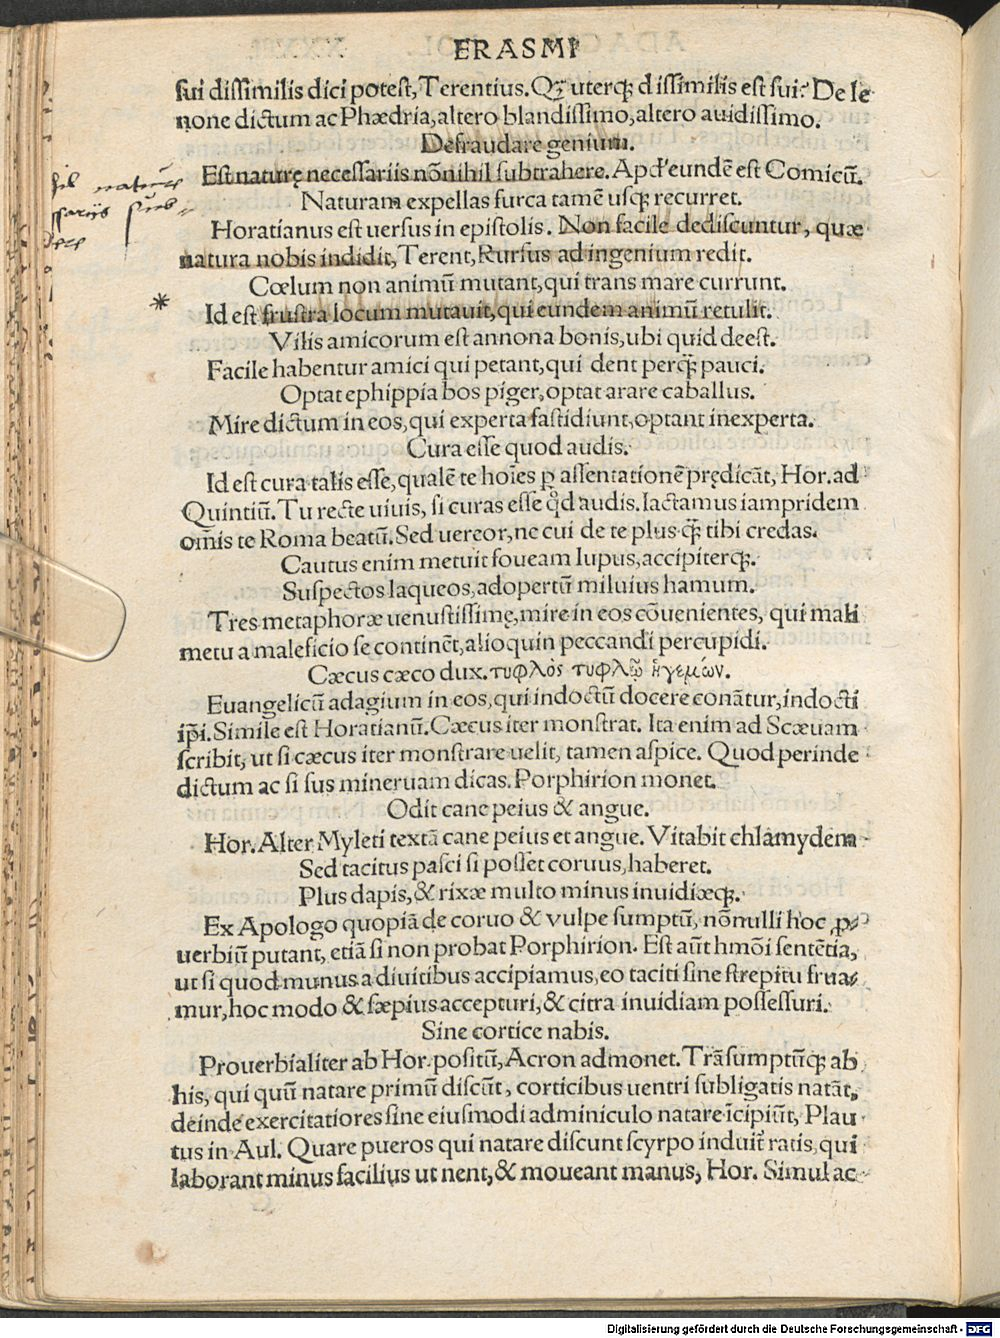 ERASMI
sui dissimilis dici potest, Terentius. Qꝫ uterqꝫ dissimilis est sui? De le
none dictum ac Phædria, altero blandissimo, altero auidissimo.
Defraudare genium.
Est naturę necessariis nōnihil subtrahere. Apd' eundē est Comicū.
Naturam expellas furca tamē usqꝫ recurret.
Horatianus est uersus in epistolis. Non facile dediscuntur, quæ
natura nobis indidit, Terent, Rursus ad ingenium redit.
Cœlum non animū mutant, qui trans mare currunt.
*
Id est frustra locum mutauit, qui eundem animū retulit.
Vilis amicorum est annona bonis, ubi quid deest.
Facile habentur amici qui petant, qui dent perqꝫ̄ pauci.
Optat ephippia bos piger, optat arare caballus.
Mire dictum in eos, qui experta fastidiunt, optant inexperta.
Cura esse quod audis.
Id est cura talis esse, qualē te hoīes ꝑ assentationē prędicāt, Hor. ad
Quintiū. Tu recte uiuis, si curas esse qd̛ audis. Iactamus iampridem
om̄is te Roma beatū. Sed uereor, ne cui de te plus qꝫ̄ tibi credas.
Cautus enim metuit foueam lupus, accipiterqꝫ.
Suspectos laqueos, adopertū miluius hamum.
Tres metaphoræ uenustissimę, mire in eos cōuenientes, qui mali
metu a maleficio se continēt, alioquin peccandi percupidi.
Cæcus cæco dux. τυφλὸς τυφλῷ ἡγεμών.
Euangelicū adagium in eos, qui indoctū docere conātur, indocti
ip̄i. Simile est Horatianū. Cæcus iter monstrat. Ita enim ad Scæuam
scribit, ut si cæcus iter monstrare uelit, tamen aspice. Quod perinde
dictum ac si sus mineruam dicas. Porphirion monet.
Odit cane peius & angue.
Hor. Alter Myleti textā cane peius et angue. Vitabit chlamydem
Sed tacitus pasci si posset coruus, haberet.
Plus dapis, & rixæ multo minus inuidiæqꝫ.
Ex Apologo quopiā de coruo & vulpe sumptū, nōnulli hoc ꝓ
uerbiū putant, etiā si non probat Porphirion. Est aūt hmōi sentētia,
ut si quod munus a diuitibus accipiamus, eo taciti sine strepitu frua
mur, hoc modo & sæpius accepturi, & citra inuidiam possessuri.
Sine cortice nabis.
Prouerbialiter ab Hor. positū, Acron admonet. Trāsumptūqꝫ ab
his, qui quū natare primū discūt, corticibus uentri subligatis natāt,
deinde exercitatiores sine eiusmodi adminiculo natare īcipiūt, Plau
tus in Aul. Quare pueros qui natare discunt scyrpo induit᷑ ratis, qui
laborant minus facilius ut nent, & moueant manus, Hor. Simul ac
Digitalisierung gefördert durch die Deutsche Forschungsgemeinschaft - DFG